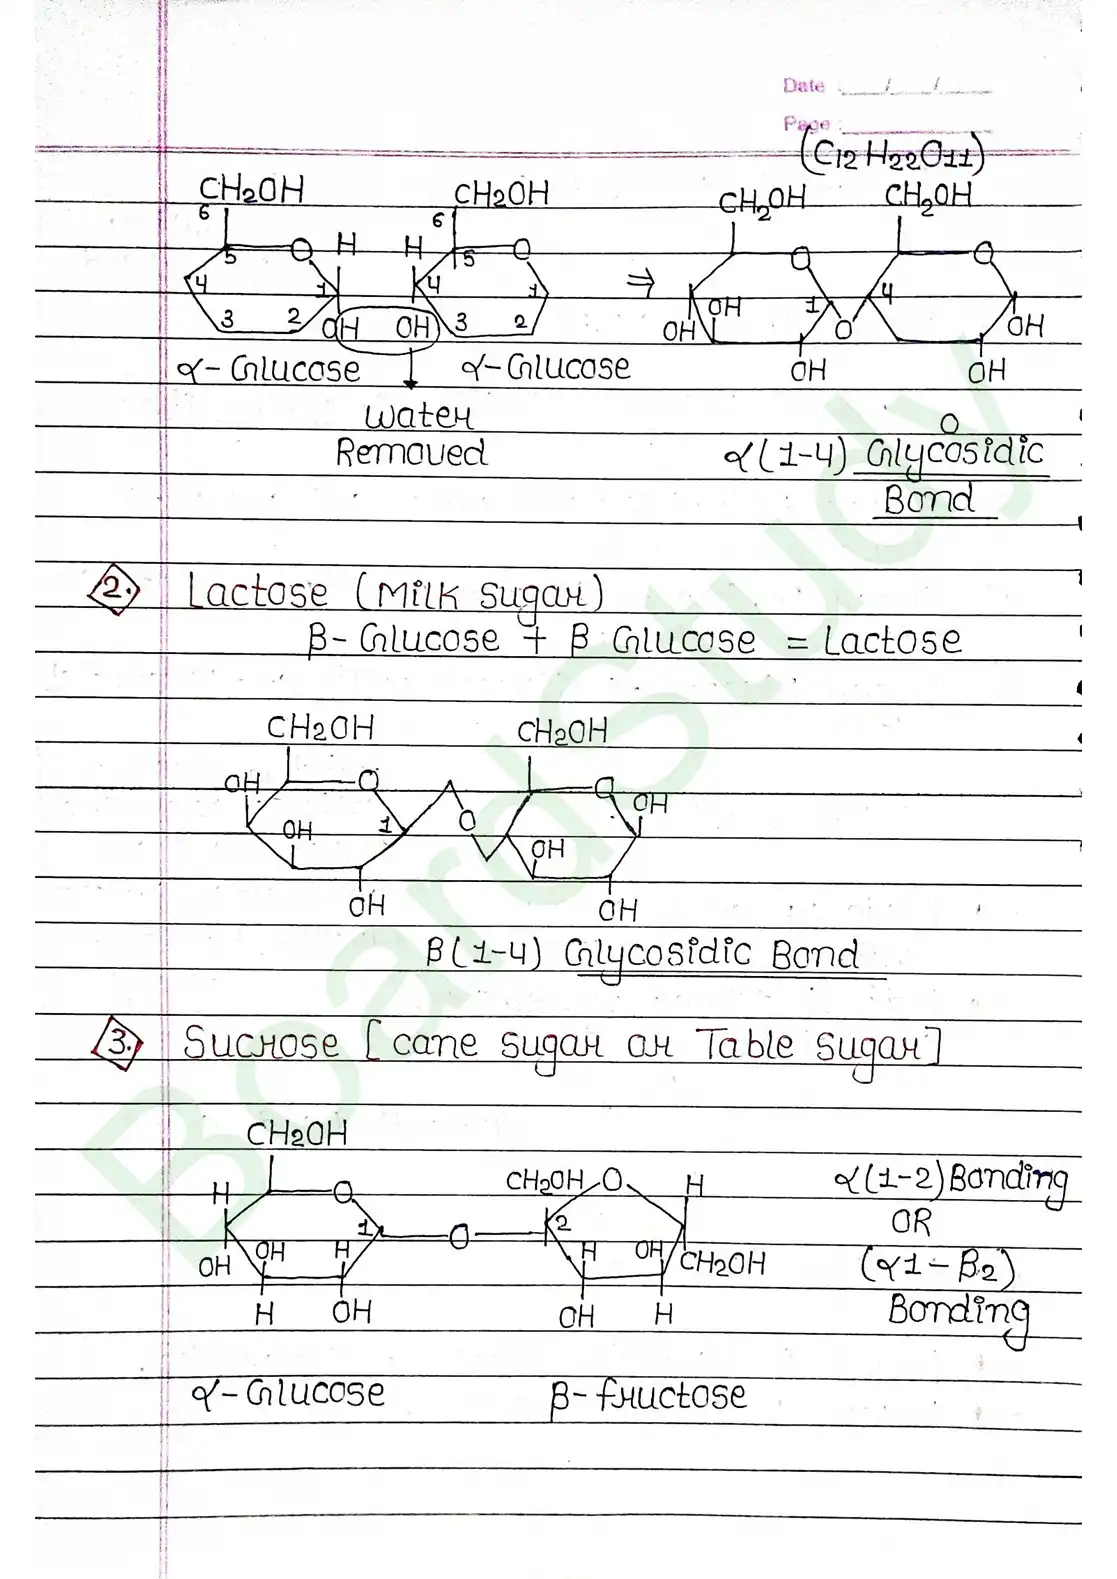 Date : ___/___/___
Page : ___
(C12 H22O11)
CH2OH CH2OH CH2OH CH2OH
6 6
5 O H H 5 O ⇒ O O
4 1 4 1 OH 1 4
3 2 OH OH 3 2 OH O OH
α-Glucose α-Glucose OH OH
Water
Removed
O
α(1-4) Glycosidic
Bond
2. Lactose (Milk sugar)
β-Glucose + β Glucose = Lactose
CH2OH CH2OH
OH O O OH
OH 1 O OH
OH OH
β(1-4) Glycosidic Bond
3. Sucrose [cane sugar or Table sugar]
CH2OH
H O CH2OH O H α(1-2) Bonding
1 O 2 OR
OH OH H H OH CH2OH (α1-β2)
H OH OH H Bonding
α-Glucose β-fructose
BoardStudy